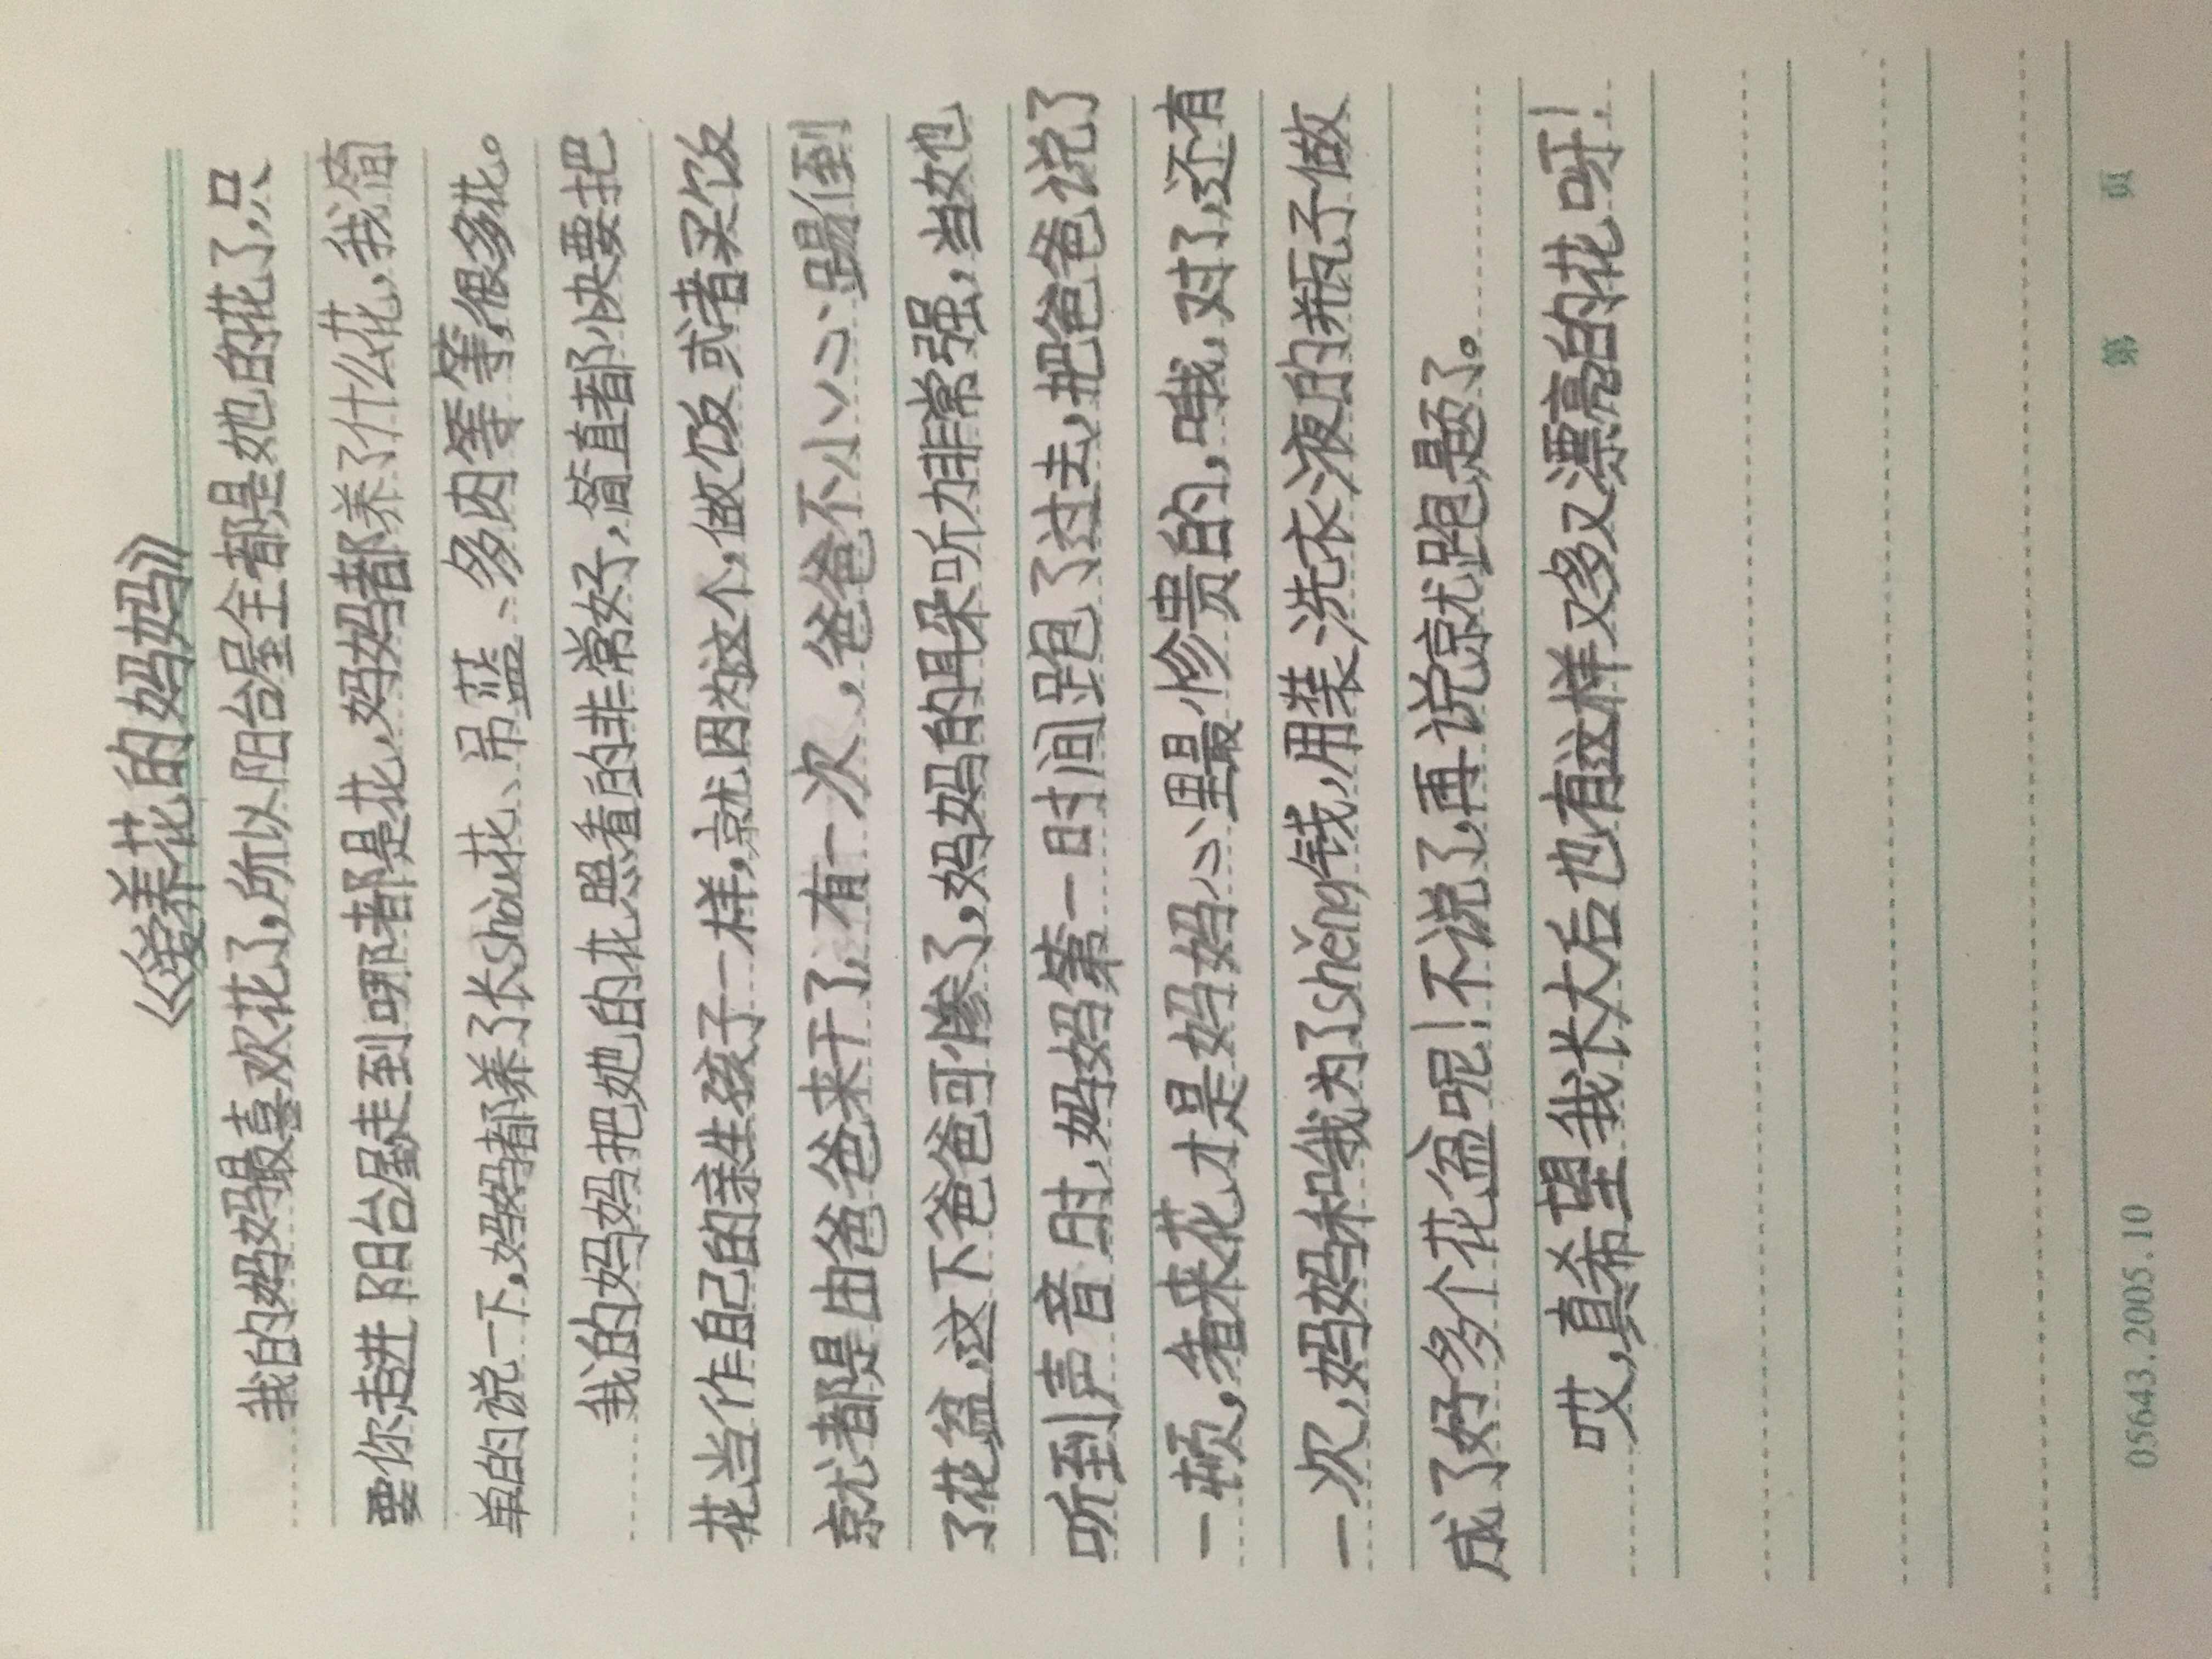 《爱养花的妈妈》
我的妈妈最喜欢花了,所以阳台屋全都是她的花了,只
要你走进阳台屋走到哪都是花,妈妈都养了什么花,我简
单的说一下,妈妈都养了长shòu花、吊蓝、多肉等等,很多花。
我的妈妈把她的花照看的非常好,简直都快要把
花当作自己的亲生孩子一样,就因为这个,做饭或者买饭
就都是由爸爸来干了,有一次,爸爸不小心踢倒
了花盆,这下爸爸可惨了,妈妈的耳朵听力非常强,当她
听到声音时,妈妈第一时间跑了过去,把爸爸说了
一顿,看来花才是妈妈心里最珍贵的,哦,对了,还有
一次,妈妈和我为了shěng钱,用装洗衣液的瓶子做
成了好多个花盆呢!不说了,再说就跑题了。
哎,真希望我长大后也有这样又多又漂亮的花呀!
05643.2005.10 第 页